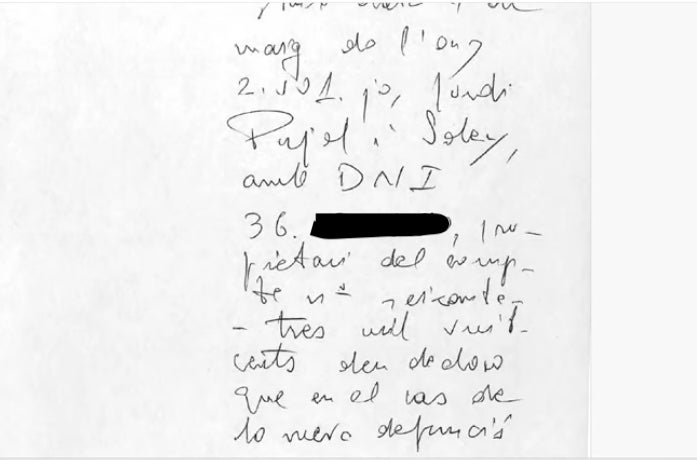 març de l'any
2.001. jo, Jordi
Pujol i Soley,
amb DNI
36. , pro-
pietari del comp-
te nº seixanta-
-tres mil vuit-
cents deu declaro
que en el cas de
la meva defunció